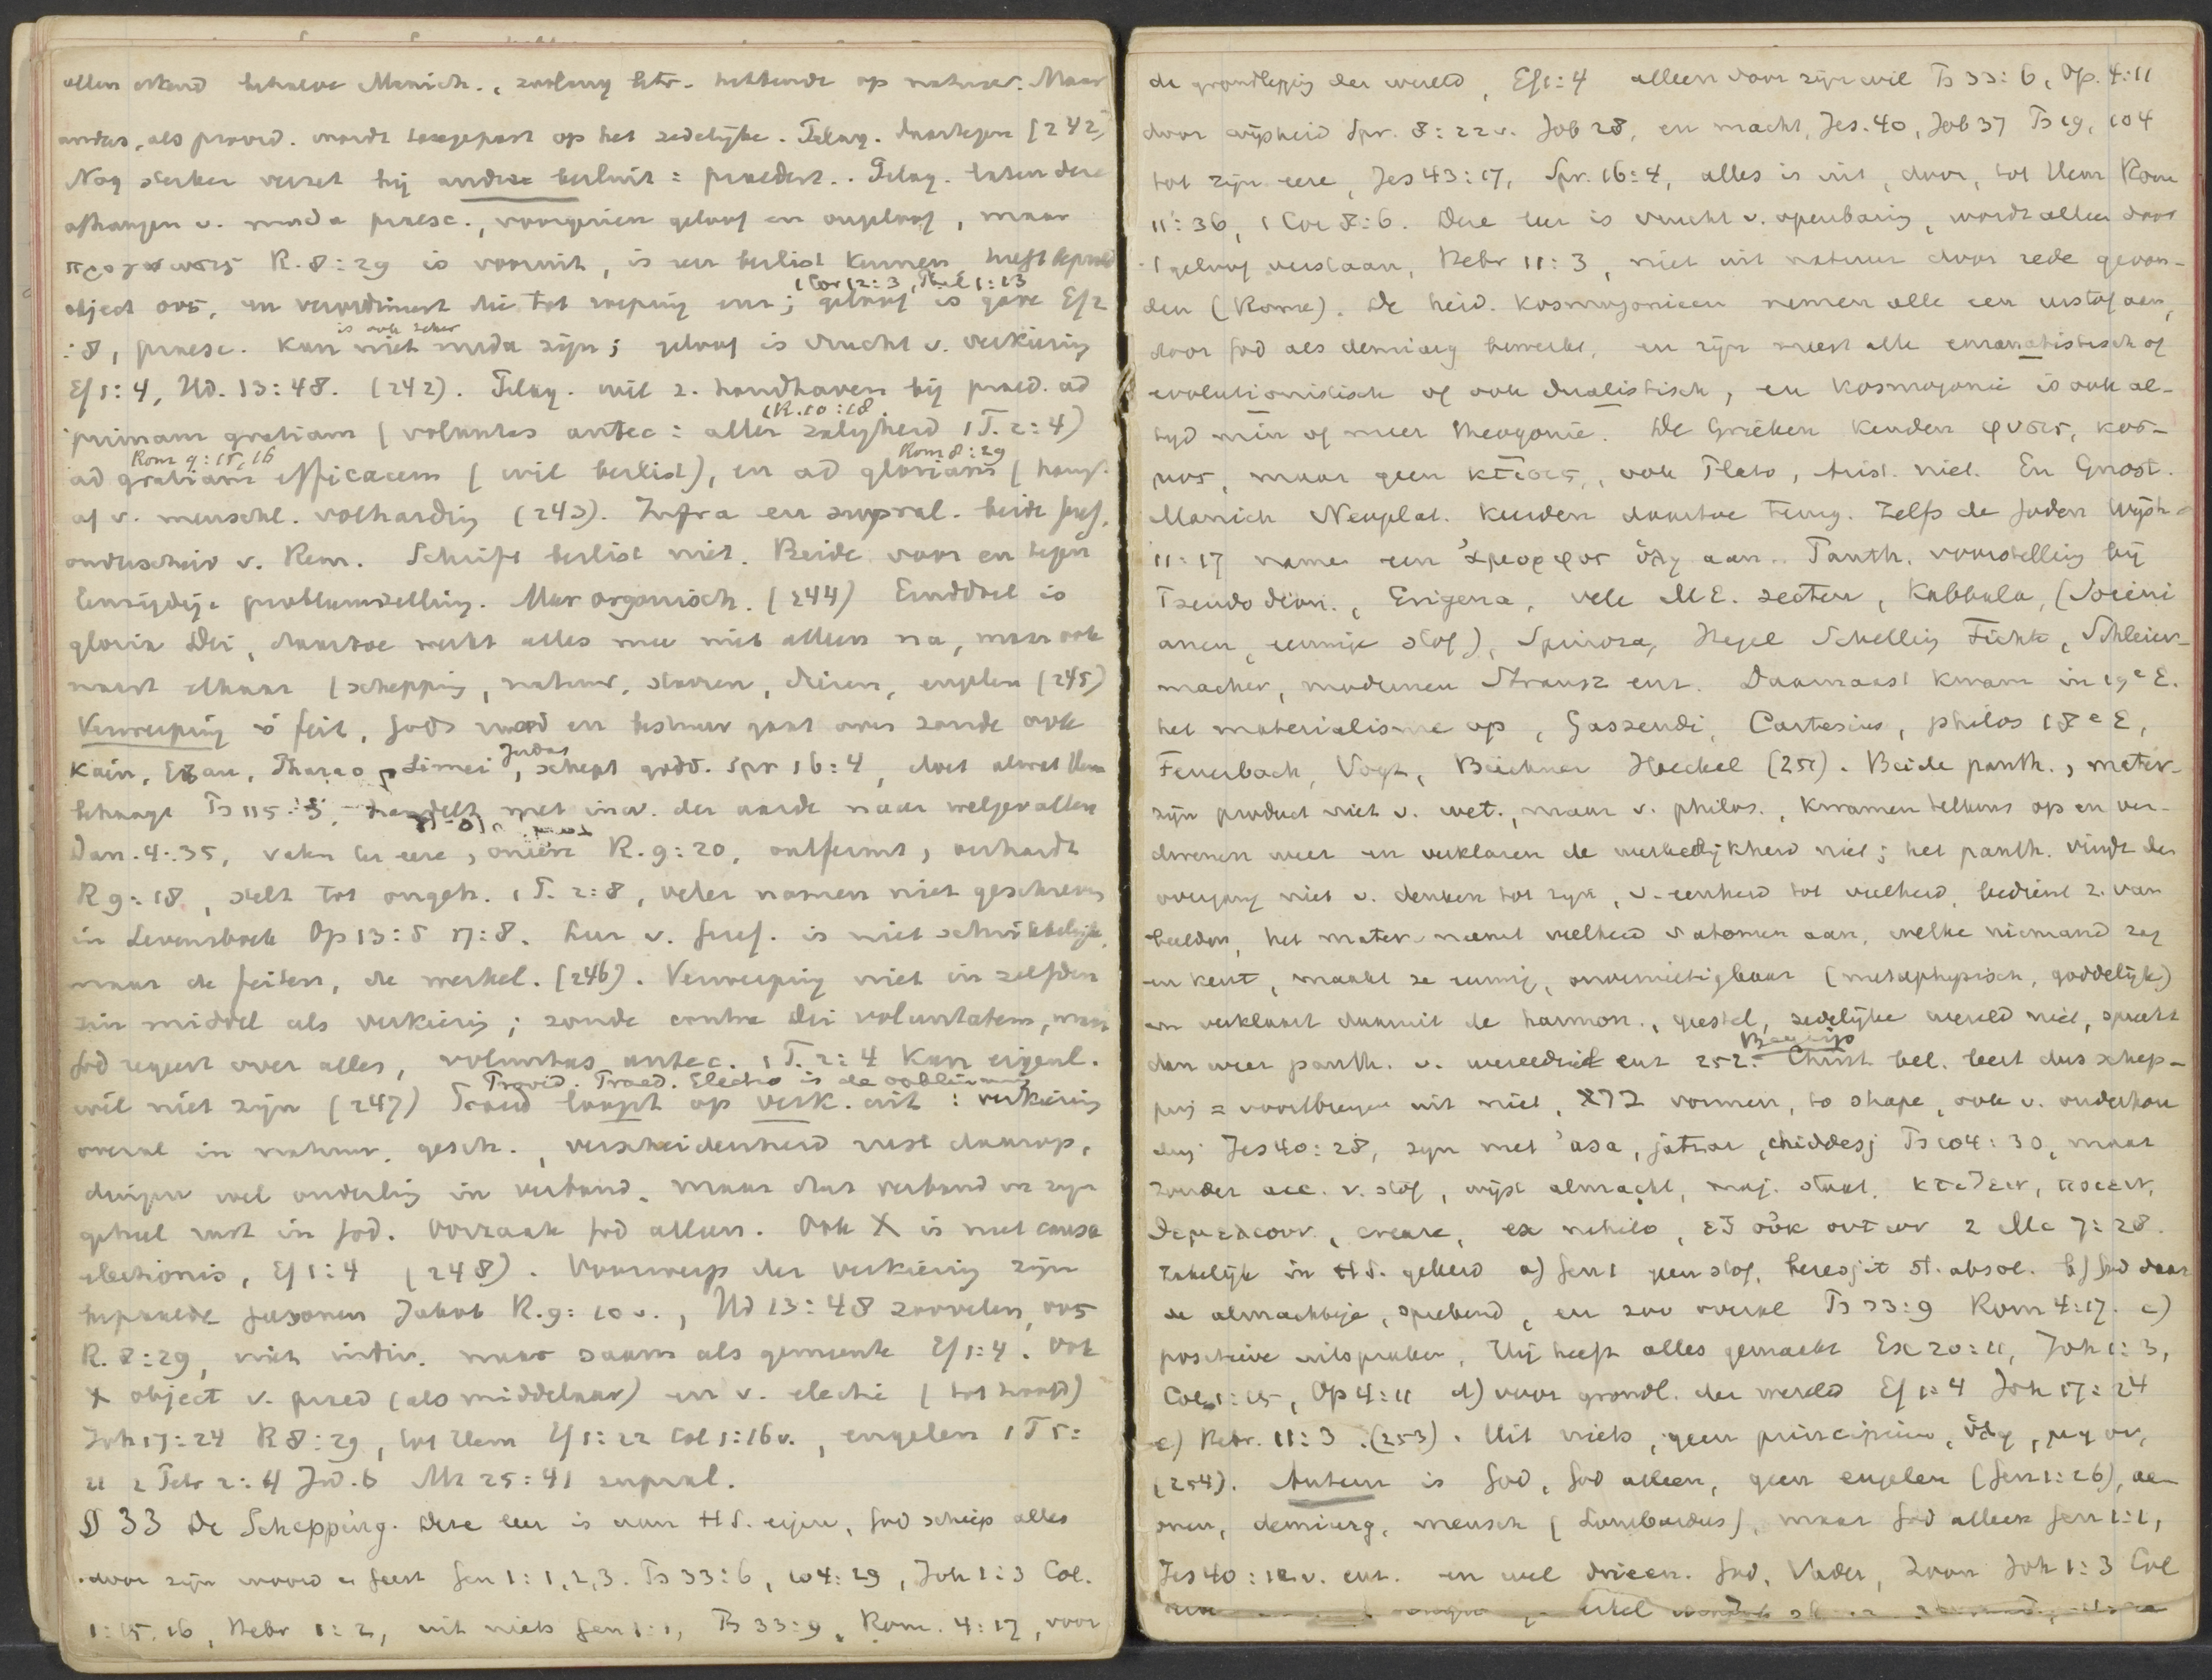 allen erkend behalve Manich., zoolang betr. hebbende op natuur. Maar
anders, als praed. wordt toegepast op het zedelijke. Pelag. daartegen (242)
Nog sterker verzet bij andere besluit = praedest.. Pelag. laten deze
afhangen v. nuda praesc., voorgezien geloof en ongeloof, maar
προγνωσις R. 8:29 is vooruit, is een beslist kennen, heeft bepaald
1 Cor 12:3, Phil 1:23
object ους, en verordineert die tot roeping enz; geloof is gave Ef 2
is ook zeker
:8, praesc. kan niet nuda zijn; geloof is vrucht v. verkiezing
Ef 1:4, Hd. 13:48. (242). Pelag. wil z. handhaven bij praed. ad
(R. 10:18.
primam gratiam (voluntas antec: aller zaligheid 1 T. 2:4)
Rom 9:15,16 Rom 8:29
ad gratiam efficacem (wil beslist), en ad gloriam (hangt
af v. menschl. volharding (243). Infra en supral. beide Geref.
onderscheid v. Rem. Schrift beslist niet. Beide voor en tegen
Eenzijdige probleemstelling. Meer organisch. (244) Einddoel is
gloria Dei, daartoe werkt alles mee niet alleen na, maar ook
naast elkaar (schepping, natuur, sterren, dieren, engelen (245)
Verwerping is feit, Gods raad en bestuur gaat over zonde ook
Judas
Kaïn, Ezau, Pharao, Simei, schept godd. Spr 16:4, doet alwat Hem
behaagt Ps 115:3, handelt met inw. der aarde naar welgevallen
Dan. 4:35, vaten ter eere, oneere R. 9:20, ontfermt, verhardt
R 9:18, stelt tot ongeh. 1 P. 2:8, veler namen niet geschreven
in Levensboek Op 13:8 17:8. Leer v. Geref. is niet schrikkelijk,
maar de feiten, de werkel. (246). Verwerping niet in zelfden
zin middel als verkiezing; zonde contra Dei voluntatem, maar
God regeert over alles, voluntas antec. 1 T. 2:4 kan eigenl.
Provid. Praed. Electio is de
wil niet zijn (247) Praed loopt op verk. uit: verkiezing
overal in natuur, gesch., verscheidenheid rust daarop,
dingen wel onderling in verband, maar dat verband in zijn
geheel rust in God. Oorzaak God alleen. Ook X is niet causa
electionis, Ef 1:4 (248). Voorwerp der verkiezing zijn
bepaalde personen Jakob R. 9:10 v., Hd 13:48 zoovelen, ους
R. 8:29, niet indiv. maar saam als gemeente Ef 1:4. Ook
X object v. praed (als middelaar) en v. electie (tot hoofd)
Joh 17:24 R 8:29, tot Hem Ef 1:22 Col 1:16v., engelen 1 T 5:
21 2 Petr 2:4 Jud. 6 Mt 25:41 supral.
§ 33 De Schepping. Deze leer is aan H S. eigen, God schiep alles
door zijn woord en Geest Gen 1:1,2,3. Ps 33:6, 104:29, Joh 1:3 Col.
1:15.16, Hebr 1:2, uit niets Gen 1:1, Ps 33:9, Rom. 4:17, voor
de grondlegging der wereld, Ef 1:4 alleen door zijn wil Ps 33:6, Op. 4:11
door wijsheid Spr. 8:22v. Job 28, en macht, Jes. 40, Job 37 Ps 19, 104
tot zijn eere, Jes 43:17, Spr. 16:4, alles is uit, door, tot Hem Rom
11:36, 1 Cor 8:6. Deze leer is vrucht v. openbaring, wordt alleen door
't geloof verstaan, Hebr 11:3, niet uit natuur door rede gevon-
den (Rome). De heid. kosmogonieën nemen alle een urstof aan,
door God als demiurg bewerkt, en zijn meest alle emanatistisch of
evolutionistisch of ook dualistisch, en kosmogonie is ook al-
tijd min of meer theogonie. De Grieken kenden φυσις, κοσ-
μος, maar geen κτισις, ook Plato, Arist. niet. En Gnost.
Manich Neoplat. keerden daartoe terug. Zelfs de Joden Wijsh.
11:17 namen een ἀμορφος ὑλη aan. Panth. voorstelling bij
Pseudo Dion., Erigena, vele M.E. secten, Kabbala, (Socini
anen, eeuwige stof), Spinoza, Hegel Schelling Fichte, Schleier-
macher, modernen Strausz enz. Daarnaast kwam in 19e E.
het materialisme op, Gassendi, Cartesius, philos 18e E,
Feuerbach, Vogt, Büchner Haeckel (251). Beide panth., mater-
zijn product niet v. wet., maar v. philos., kwamen telkens op en ver-
dwenen weer en verklaren de werkelijkheid niet; het panth. vindt den
overgang niet v. denken tot zijn, v. eenheid tot veelheid, bedient z. van
beelden, het mater. neemt veelheid v atomen aan, welke niemand zag
en kent, maakt ze eeuwig, onvernietigbaar (metaphysisch, goddelijk)
en verklaart daaruit de harmon., geestel, zedelijke wereld niet, spreekt
Begrip
dan weer panth. v. wereldziel enz 252. Christ bel. leert dus schep-
ping = voortbrengen uit niet, ברא vormen, to shape, ook v. onderhou
ding Jes 40:28, syn met 'asa, jatsar, chiddesj Ps 104:30, maar
zonder acc. v. stof, wijst almacht, maj. staat. κτιζειν, ποιειν,
θεμελιουν, creare, ex nihilo, ἐξ οὐκ οντων 2 Mc 7:28.
zakelijk in H S. geleerd a) Gen 1 geen stof, beresjit st. absol. b) God daar
de almachtige, sprekend, en zoo overal Ps 33:9 Rom 4:17. c)
positieve uitspraken, Hij heeft alles gemaakt Ex 20:11, Joh 1:3,
Col 1:15, Op 4:11 d) voor grondl. der wereld Ef 1:4 Joh 17:24
e) Hebr. 11:3. (253). Uit niets, geen principium, ὑλη, μη ον,
(254). Auteur is God, God alleen, geen engelen (Gen 1:26), ae-
onen, demiurg, mensch (Lombardus), maar God alleen Gen 1:1,
Jes 40:12v. enz. en wel drieëen. God, Vader, Zoon Joh 1:3 Col